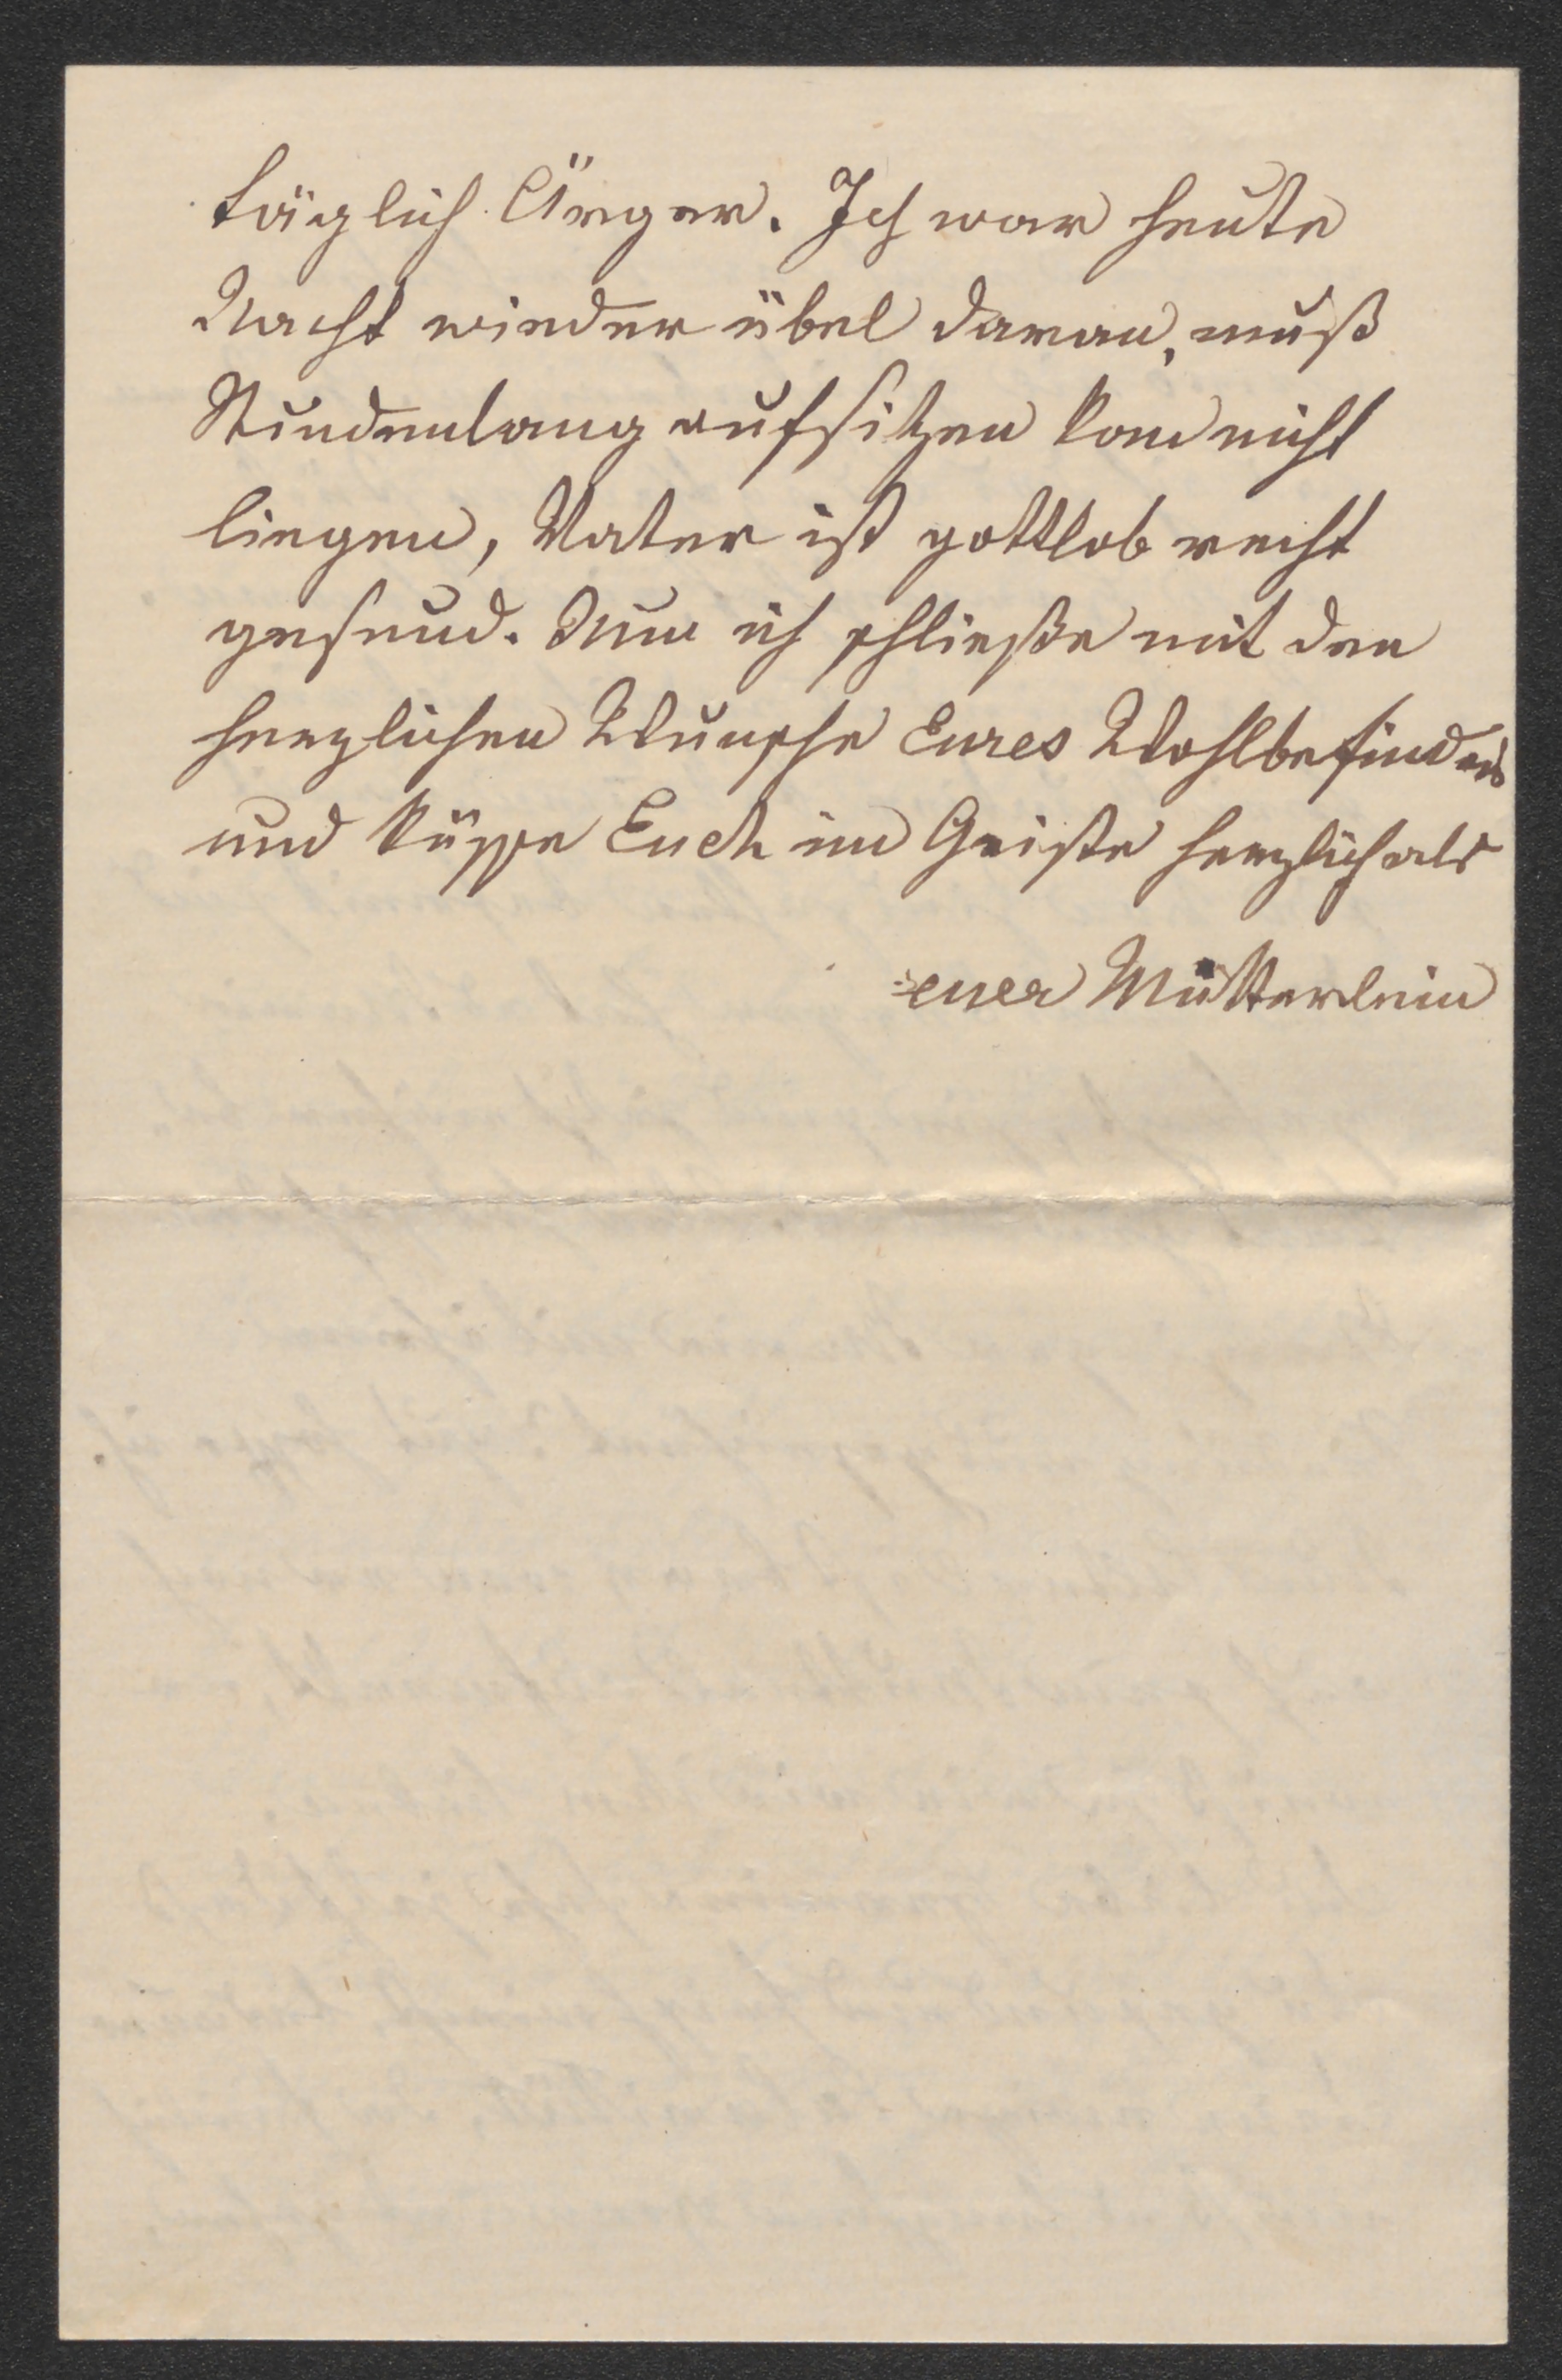 täglich Ärger. Ich war heute
Nacht wieder übel daran, muß
Stundenlang aufsitzen kann nicht
liegen, Vater ist gottlob recht
gesund. Nun ich schließe mit den
herzlichen Wunsche Eures Wohlbefindens
und küsse Euch im Geiste herzlich als
euer Mütterlein